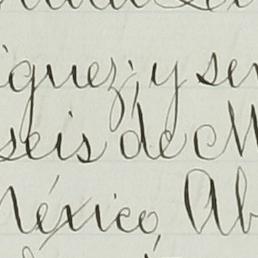 iguez; y ser
seis de M
México, Ab